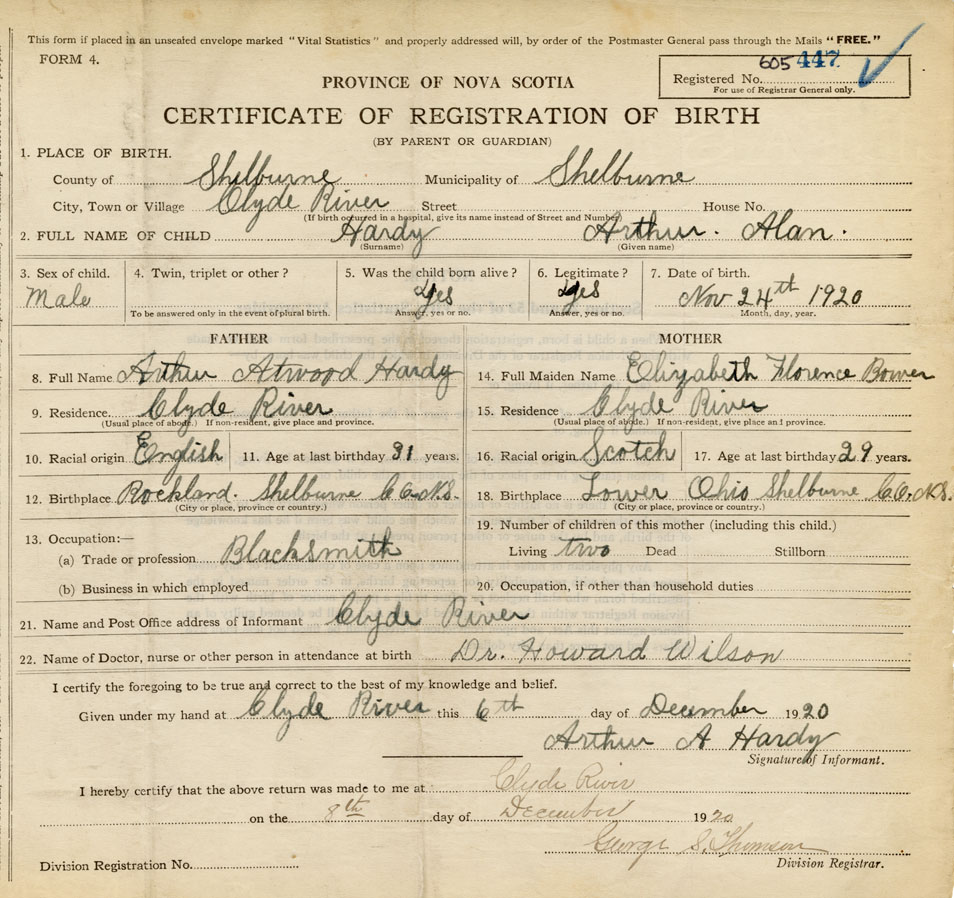 This form if placed in an unsealed envelope marked "Vital Statistics" and properly addressed will, by order of the Postmaster General pass through the Mails "FREE."
FORM 4.
605 447
Registered No.
For use of Registrar General only.
PROVINCE OF NOVA SCOTIA
CERTIFICATE OF REGISTRATION OF BIRTH
(BY PARENT OR GUARDIAN)
1. PLACE OF BIRTH.
County of Shelburne Municipality of Shelburne
City, Town or Village Clyde River Street House No.
(If birth occurred in a hospital, give its name instead of Street and Number)
2. FULL NAME OF CHILD Hardy Arthur. Alan.
(Surname) (Given name)
3. Sex of child. 4. Twin, triplet or other? 5. Was the child born alive? 6. Legitimate? 7. Date of birth.
Male Yes Yes Nov 24th 1920
To be answered only in the event of plural birth. Answer, yes or no. Answer, yes or no. Month, day, year.
FATHER MOTHER
8. Full Name Arthur Atwood Hardy 14. Full Maiden Name Elizabeth Florence Bower
9. Residence. Clyde River 15. Residence Clyde River
(Usual place of abode.) If non-resident, give place and province. (Usual place of abode.) If non-resident, give place and province.
10. Racial origin English 11. Age at last birthday 31 years. 16. Racial origin Scotch 17. Age at last birthday 29 years.
12. Birthplace Rockland. Shelburne Co. N.S. 18. Birthplace Lower Ohio Shelburne Co. N.S.
(City or place, province or country.) (City or place, province or country.)
13. Occupation:— 19. Number of children of this mother (including this child.)
(a) Trade or profession Blacksmith Living two Dead Stillborn
(b) Business in which employed 20. Occupation, if other than household duties
21. Name and Post Office address of Informant Clyde River
22. Name of Doctor, nurse or other person in attendance at birth Dr. Howard Wilson
I certify the foregoing to be true and correct to the best of my knowledge and belief.
Given under my hand at Clyde River this 6th day of December 1920
Arthur A Hardy
Signature of Informant.
I hereby certify that the above return was made to me at Clyde River
on the 8th day of December 1920
George S. Thomson
Division Registration No. Division Registrar.